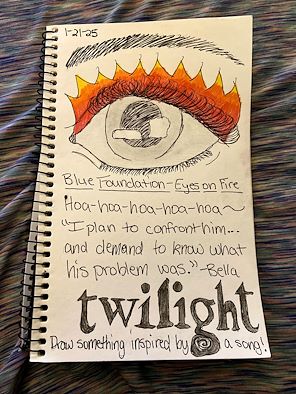 1-21-25
Blue Foundation-Eyes on Fire
Hoa-hoa-hoa-hoa-hoa~
"I plan to confront him...
and demand to know what
his problem was." -Bella
twilight
Draw something inspired by a song!